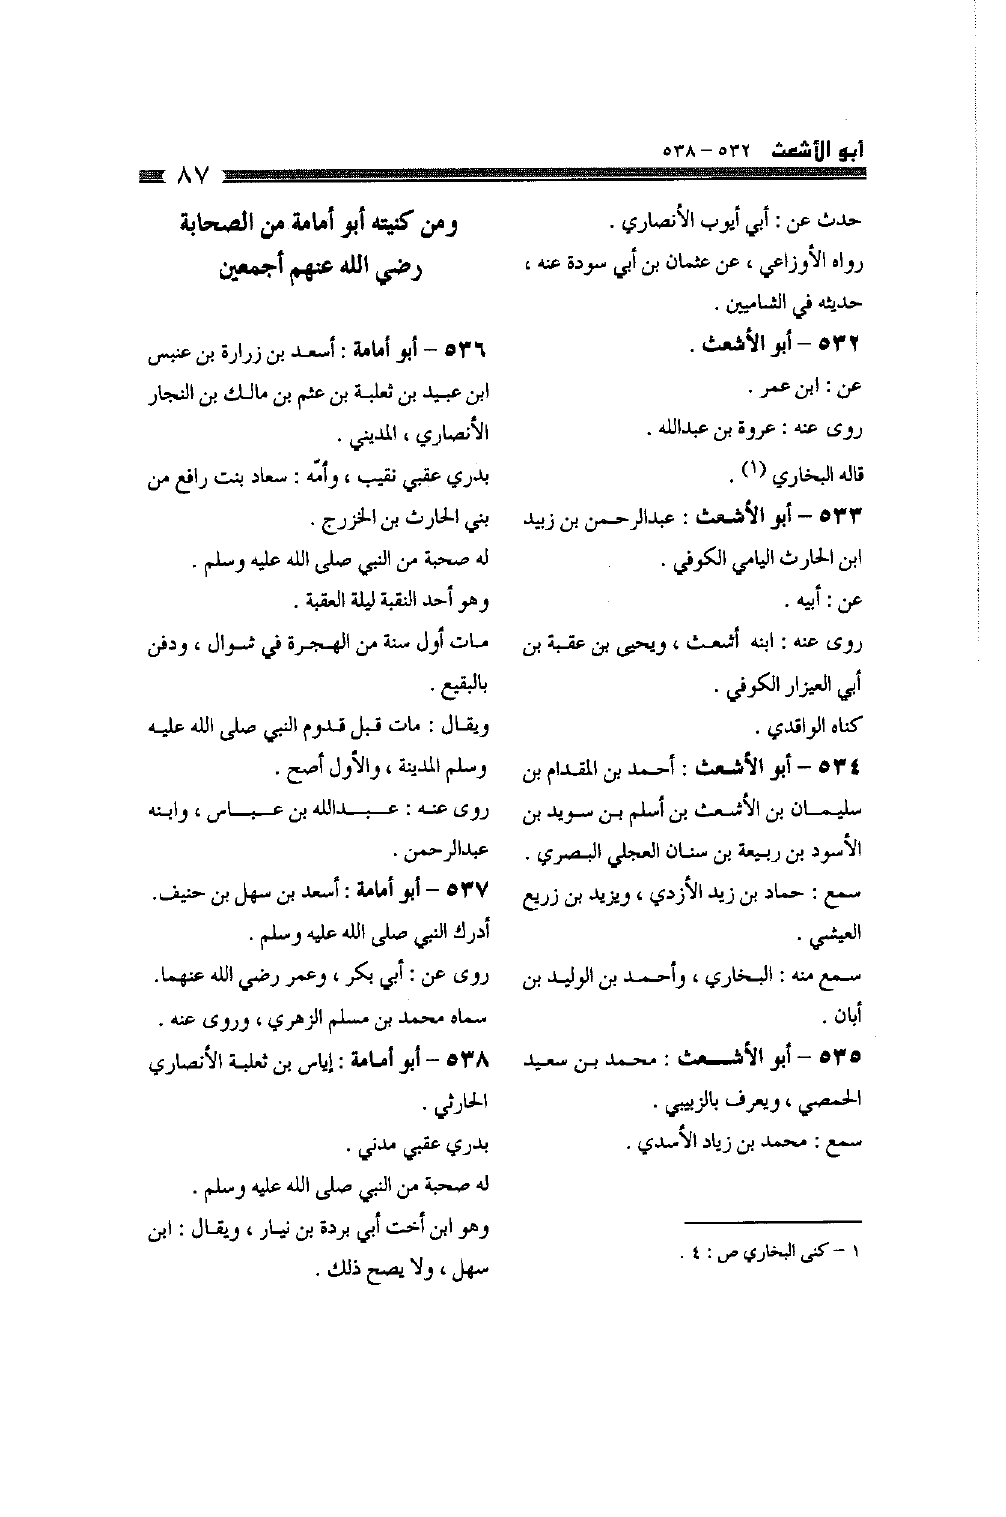 أبو الأشعث ٥٣٢ – ٥٣٨
٨٧
حدث عن : أبي أيوب الأنصاري .
رواه الأوزاعي ، عن عثمان بن أبي سودة عنه ،
حديثه في الشاميين .
٥٣٢ – أبو الأشعث .
عن : ابن عمر .
روى عنه : عروة بن عبدالله .
قاله البخاري (١) .
٥٣٣ – أبو الأشعث : عبدالرحمن بن زبيد
ابن الحارث اليامي الكوفي .
عن : أبيه .
روى عنه : ابنه أشعث ، ويحيى بن عقبة بن
أبي العيزار الكوفي .
كناه الواقدي .
٥٣٤ – أبو الأشعث : أحمد بن المقدام بن
سليمان بن الأشعث بن أسلم بن سويد بن
الأسود بن ربيعة بن سنان العجلي البصري .
سمع : حماد بن زيد الأزدي ، ويزيد بن زريع
العيشي .
سمع منه : البخاري ، وأحمد بن الوليد بن
أبان .
٥٣٥ – أبو الأشعث : محمد بن سعيد
الحمصي ، ويعرف بالزبيبي .
سمع : محمد بن زياد الأسدي .
١ – كنى البخاري ص : ٤ .
ومن كنيته أبو أمامة من الصحابة
رضي الله عنهم أجمعين
٥٣٦ – أبو أمامة : أسعد بن زرارة بن عنبس
ابن عبيد بن ثعلبة بن عثم بن مالك بن النجار
الأنصاري ، المديني .
بدري عقبي نقيب ، وأمّه : سعاد بنت رافع من
بني الحارث بن الخزرج .
له صحبة من النبي صلى الله عليه وسلم .
وهو أحد النقبة ليلة العقبة .
مات أول سنة من الهجرة في شوال ، ودفن
بالبقيع .
ويقال : مات قبل قدوم النبي صلى الله عليه
وسلم المدينة ، والأول أصح .
روى عنه : عبدالله بن عباس ، وابنه
عبدالرحمن .
٥٣٧ – أبو أمامة : أسعد بن سهل بن حنيف.
أدرك النبي صلى الله عليه وسلم .
روى عن : أبي بكر ، وعمر رضي الله عنهما.
سماه محمد بن مسلم الزهري ، وروى عنه .
٥٣٨ – أبو أمامة : إياس بن ثعلبة الأنصاري
الحارثي .
بدري عقبي مدني .
له صحبة من النبي صلى الله عليه وسلم .
وهو ابن أخت أبي بردة بن نيار ، ويقال : ابن
سهل ، ولا يصح ذلك .